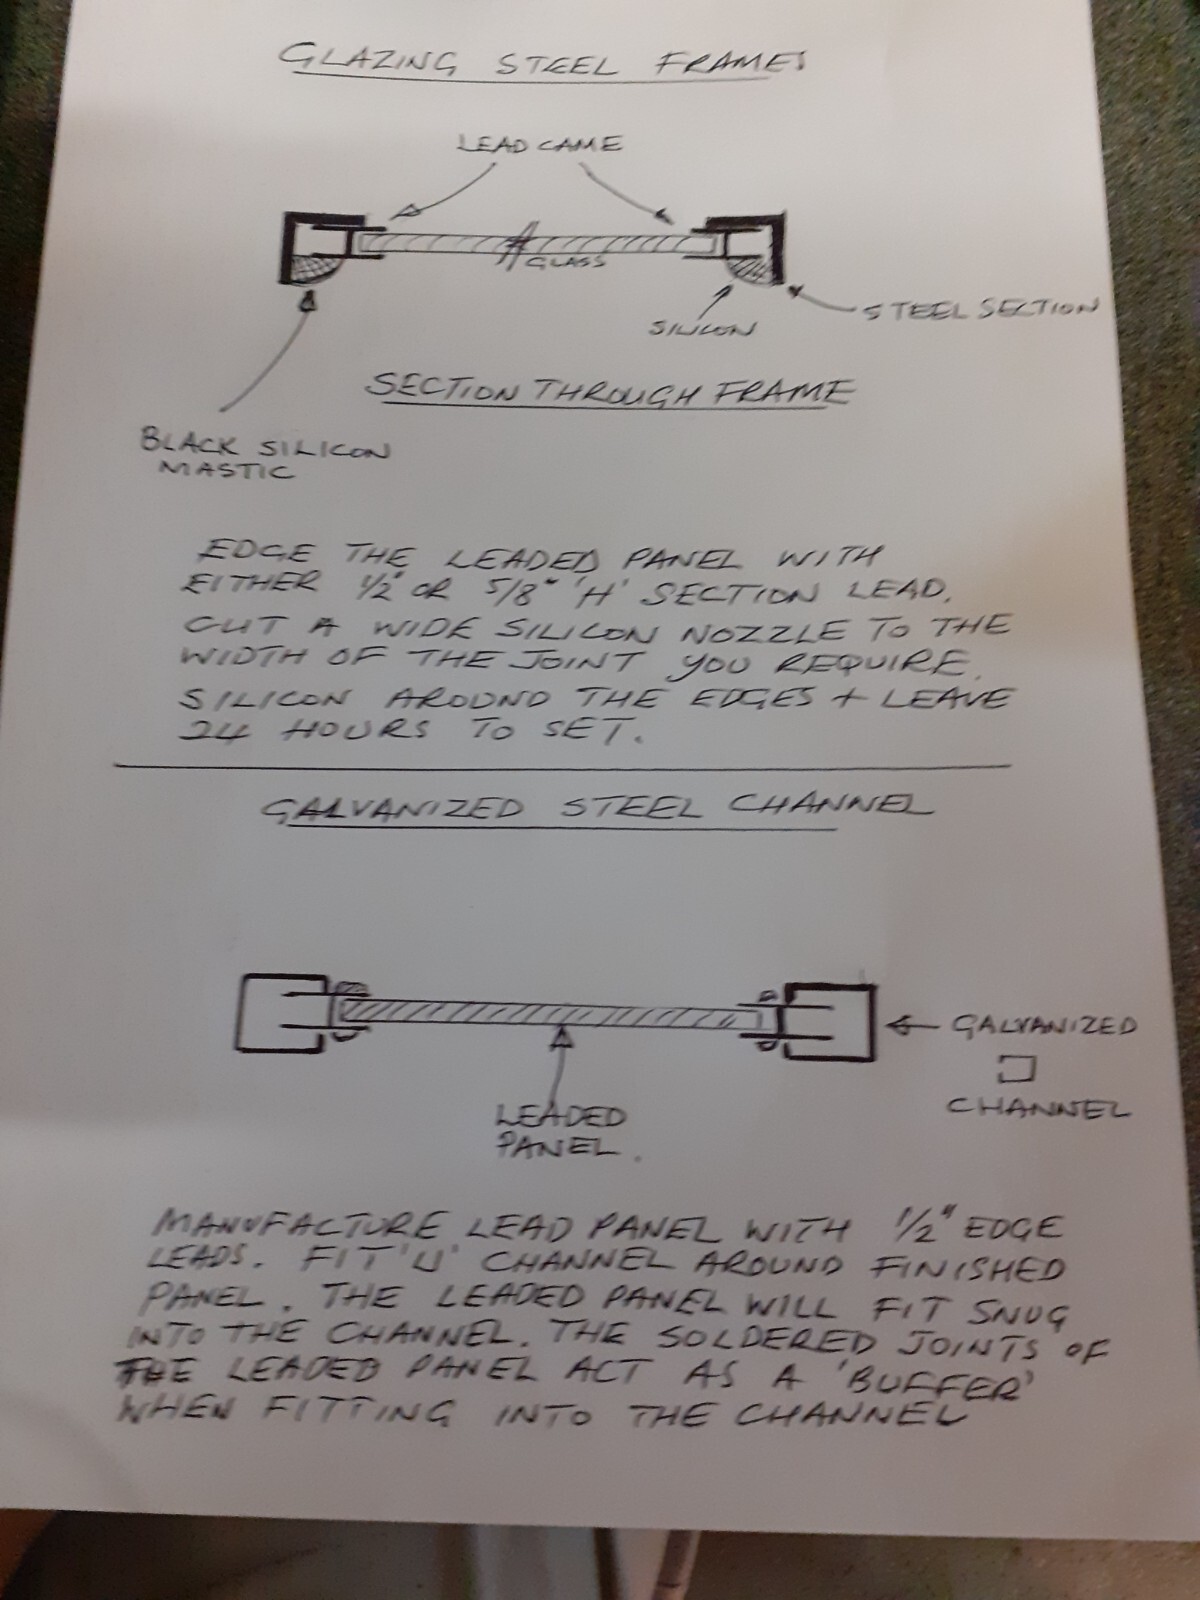 GLAZING STEEL FRAMES
LEAD CAME
GLASS
SILICON
STEEL SECTION
SECTION THROUGH FRAME
BLACK SILICON
MASTIC
EDGE THE LEADED PANEL WITH
EITHER 1/2" OR 5/8" 'H' SECTION LEAD.
CUT A WIDE SILICON NOZZLE TO THE
WIDTH OF THE JOINT YOU REQUIRE.
SILICON AROUND THE EDGES + LEAVE
24 HOURS TO SET.
GALVANIZED STEEL CHANNEL
GALVANIZED
CHANNEL
LEADED
PANEL.
MANUFACTURE LEAD PANEL WITH 1/2" EDGE
LEADS. FIT 'U' CHANNEL AROUND FINISHED
PANEL. THE LEADED PANEL WILL FIT SNUG
INTO THE CHANNEL. THE SOLDERED JOINTS OF
THE LEADED PANEL ACT AS A 'BUFFER'
WHEN FITTING INTO THE CHANNEL